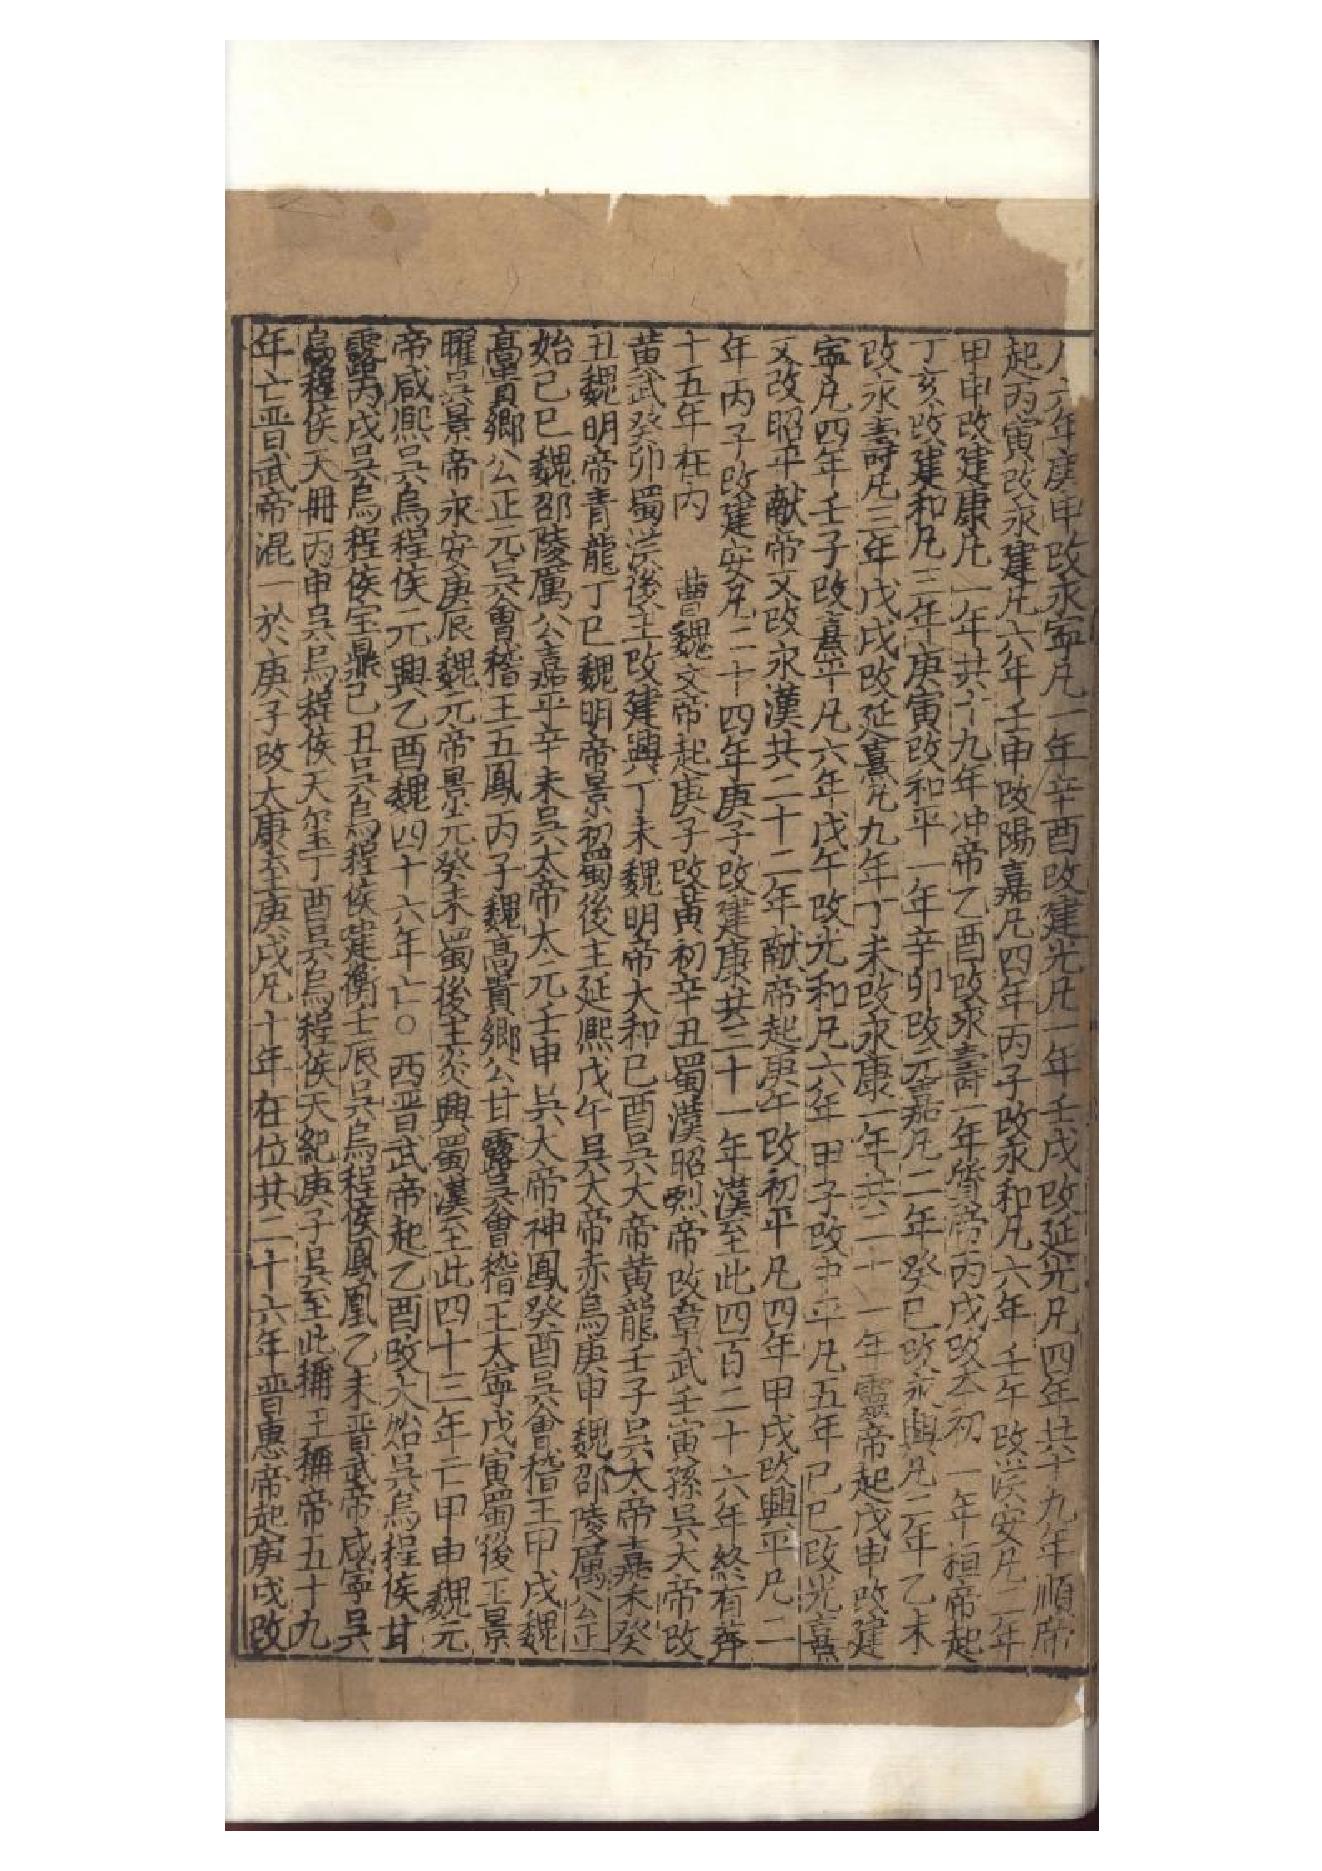 六年庚申改永寧凡一年辛酉改建光凡一年壬戌改延光凡四年共十九年順帝
起丙寅改永建凡六年壬申改陽嘉凡四年丙子改永和凡六年壬午改漢安凡二年
甲申改建康凡一年共十九年冲帝乙酉改永壽一年質帝丙戌改本初一年桓帝起
丁亥改建和凡三年庚寅改和平一年辛卯改元嘉凡二年癸巳改永興凡二年乙未
改永壽凡三年戊戌改延熹凡九年丁未改永康一年共二十一年靈帝起戊申改建
寧凡四年壬子改熹平凡六年戊午改光和凡六年甲子改中平凡五年己巳改光熹
又改昭平献帝又改永漢共二十二年献帝起庚午改初平凡四年甲戌改興平凡二
年丙子改建安凡二十四年庚子改建康共三十一年漢至此四百二十六年終有莽
十五年在内 曹魏文帝起庚子改黄初辛丑蜀漢昭烈帝改章武壬寅孫吳大帝改
黄武癸卯蜀漢後主改建興丁未魏明帝大和己酉吳大帝黄龍壬子吳大帝嘉禾癸
丑魏明帝青龍丁巳魏明帝景初蜀後主延熙戊午吳大帝赤烏庚申魏邵陵厲公正
始己巳魏邵陵厲公嘉平辛未吳太帝太元壬申吳大帝神鳳癸酉吳會稽王甲戌魏
高貴鄉公正元吳會稽王五鳳丙子魏高貴鄉公甘露吳會稽王大寧戊寅蜀後主景
曜吳景帝永安庚辰魏元帝景元癸未蜀後主炎興蜀漢至此四十三年亡甲申魏元
帝咸熙吳烏程侯元興乙酉魏四十六年亡○西晋武帝起乙酉改大始吳烏程侯甘
露丙戌吳烏程侯宝鼎己丑吳烏程侯建衡壬辰吳烏程侯鳳凰乙未晋武帝咸寧吳
烏程侯天冊丙申吳烏程侯天玺丁酉吳烏程侯天紀庚子吳至此稱王稱帝五十九
年亡晋武帝混一於庚子改大康至庚戌凡十年在位共二十六年晋惠帝起庚戌改